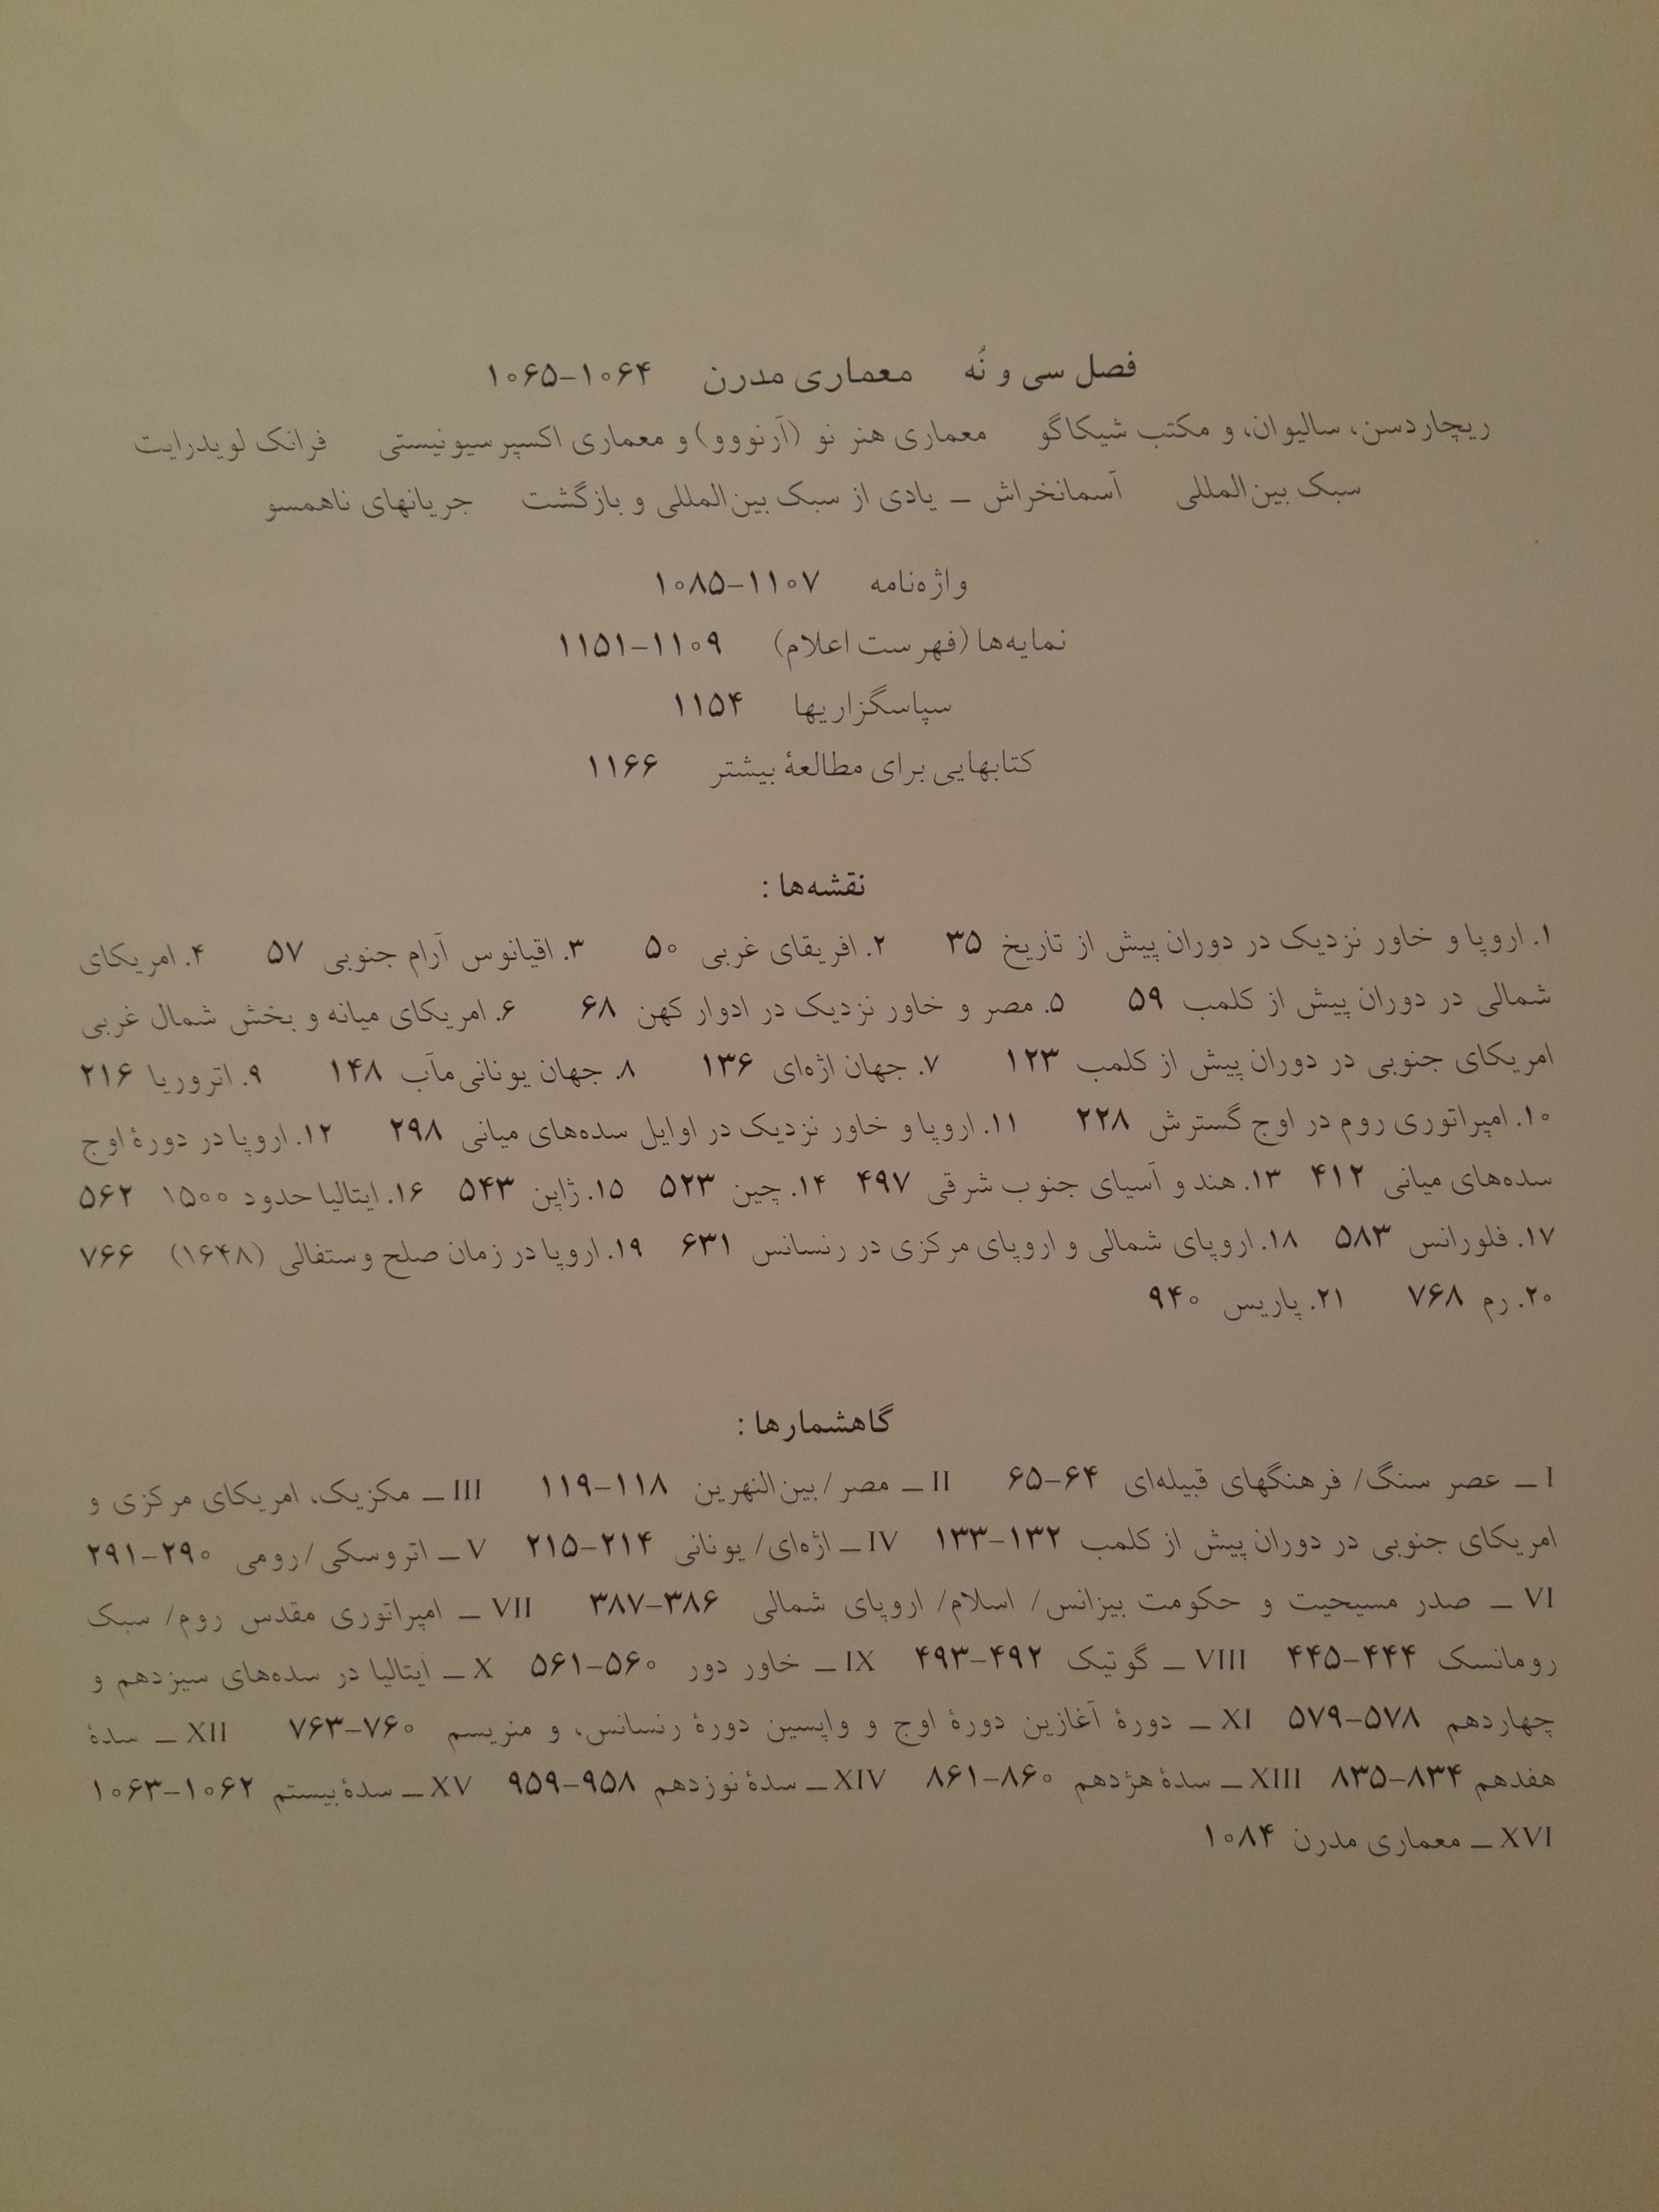 فصل سی و نُه معماری مدرن ۱۰۶۴-۱۰۶۵
ریچاردسن، سالیوان، و مکتب شیکاگو معماری هنر نو (آرنووو) و معماری اکسپرسیونیستی فرانک لویدرایت
سبک بین‌المللی آسمانخراش ــ یادی از سبک بین‌المللی و بازگشت جریانهای ناهمسو
واژه‌نامه ۱۱۰۷-۱۰۸۵
نمایه‌ها (فهرست اعلام) ۱۱۰۹-۱۱۵۱
سپاسگزاریها ۱۱۵۴
کتابهایی برای مطالعهٔ بیشتر ۱۱۶۶
نقشه‌ها :
۱. اروپا و خاور نزدیک در دوران پیش از تاریخ ۳۵ ۲. افریقای غربی ۵۰ ۳. اقیانوس آرام جنوبی ۵۷ ۴. امریکای
شمالی در دوران پیش از کلمب ۵۹ ۵. مصر و خاور نزدیک در ادوار کهن ۶۸ ۶. امریکای میانه و بخش شمال غربی
امریکای جنوبی در دوران پیش از کلمب ۱۲۳ ۷. جهان اژه‌ای ۱۳۶ ۸. جهان یونانی‌مآب ۱۴۸ ۹. اتروریا ۲۱۶
۱۰. امپراتوری روم در اوج گسترش ۲۲۸ ۱۱. اروپا و خاور نزدیک در اوایل سده‌های میانی ۲۹۸ ۱۲. اروپا در دورهٔ اوج
سده‌های میانی ۴۱۲ ۱۳. هند و آسیای جنوب شرقی ۴۹۷ ۱۴. چین ۵۲۳ ۱۵. ژاپن ۵۴۳ ۱۶. ایتالیا حدود ۱۵۰۰ ۵۶۲
۱۷. فلورانس ۵۸۳ ۱۸. اروپای شمالی و اروپای مرکزی در رنسانس ۶۳۱ ۱۹. اروپا در زمان صلح وستفالی (۱۶۴۸) ۷۶۶
۲۰. رم ۷۶۸ ۲۱. پاریس ۹۴۰
گاهشمارها :
I ــ عصر سنگ/ فرهنگهای قبیله‌ای ۶۴-۶۵ II ــ مصر/بین‌النهرین ۱۱۸-۱۱۹ III ــ مکزیک، امریکای مرکزی و
امریکای جنوبی در دوران پیش از کلمب ۱۳۲-۱۳۳ IV ــ اژه‌ای/ یونانی ۲۱۴-۲۱۵ V ــ اتروسکی/رومی ۲۹۰-۲۹۱
VI ــ صدر مسیحیت و حکومت بیزانس/ اسلام/ اروپای شمالی ۳۸۶-۳۸۷ VII ــ امپراتوری مقدس روم/ سبک
رومانسک ۴۴۴-۴۴۵ VIII ــ گوتیک ۴۹۲-۴۹۳ IX ــ خاور دور ۵۶۰-۵۶۱ X ــ ایتالیا در سده‌های سیزدهم و
چهاردهم ۵۷۸-۵۷۹ XI ــ دورهٔ آغازین دورهٔ اوج و واپسین دورهٔ رنسانس، و منریسم ۷۶۰-۷۶۳ XII ــ سدهٔ
هفدهم ۸۳۴-۸۳۵ XIII ــ سدهٔ هژدهم ۸۶۰-۸۶۱ XIV ــ سدهٔ نوزدهم ۹۵۸-۹۵۹ XV ــ سدهٔ بیستم ۱۰۶۲-۱۰۶۳
XVI ــ معماری مدرن ۱۰۸۴